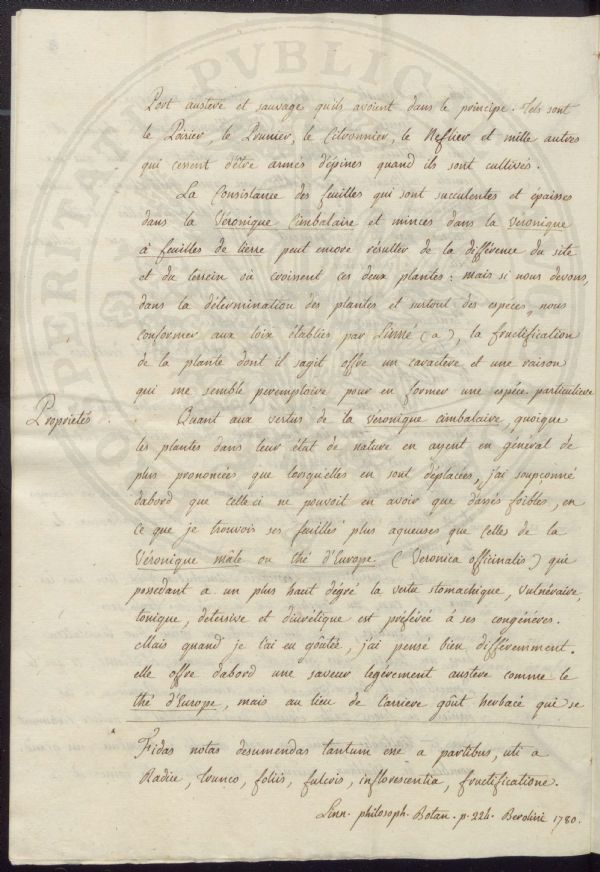 Port austere et sauvage quils avoient dans le principe. tels sont
le Poirier, le Prunier, le Citronnier, le Neflier et mille autres
qui cessent d'être armés d'épines quand ils sont cultivés.
La Consistance des feuilles qui sont succulentes et épaisses
dans la Veronique Cimbalaire et minces dans la Veronique
à feuilles de lierre peut encore résulter de la différence du site
et du terrein où croissent ces deux plantes: mais si nous devons,
dans la détermination des plantes et surtout des especes, nous
conformer aux loix établies par Linné (a), la fructification
de la plante dont il sagit offre un caractere et une raison
qui me semble peremptoire pour en former une espéce particuliere
Propriétés.
Quant aux vertus de la véronique cimbalaire, quoique
les plantes dans leur état de nature en ayent en général de
plus prononcées que lorsqu'elles en sont déplacées, j'ai soupçonné
dabord que celle ci ne pouvoit en avoir que dassés foibles, en
ce que je trouvois ses feuilles plus aqueuses que celles de la
Véronique mâle ou thé d'Europe (Veronica officinalis) qui
possedant a un plus haut dégré la vertu stomachique, vulnéraire,
tonique, detersive et diurétique est préférée à ses congénéres.
Mais quand je l'ai eu goûtée, j'ai pensé bien différemment.
elle offre dabord une saveur legérement austere comme le
thé d'Europe, mais au lieu de l'arriere goût herbacé qui se
Fidas notas desumendas tantum esse a partibus, uti a
Radice, trunco, foliis, fulcris, inflorescentia, fructificatione.
Linn. philosoph. Botan. p. 224. Berolini 1780.